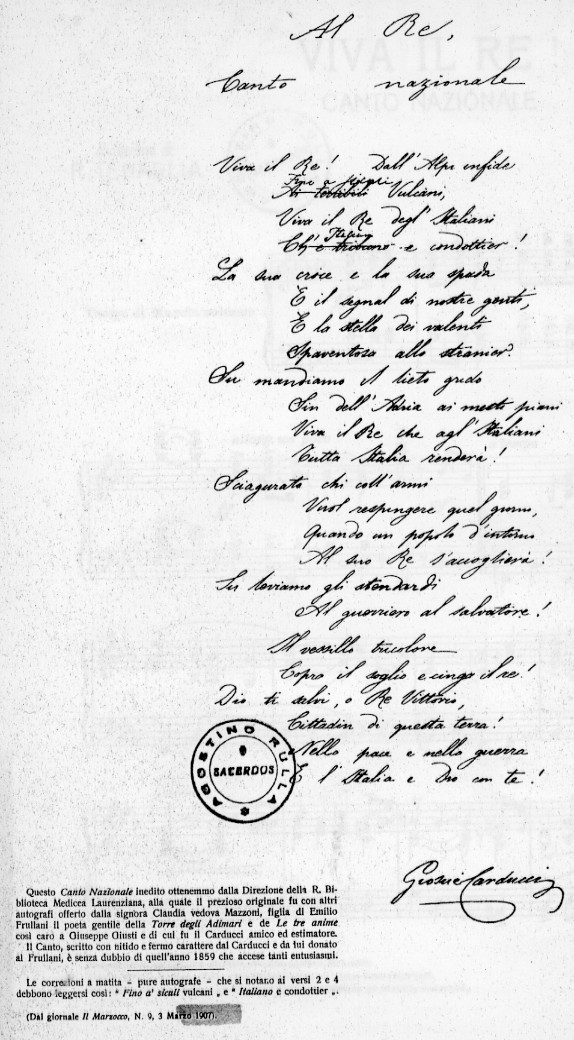 Al Re,
Canto nazionale
Viva il Re! Dall'Alpi infide
Fino a' siculi
Ai terribili Vulcani,
Viva il Re degl'Italiani
Italiano
Ch'è tribuno e condottier!
La sua croce e la sua spada
È il segnal di nostre genti,
È la stella dei valenti
Spaventosa allo stranier.
Su mandiamo il lieto grido
Sin dell'Adria ai mesti piani
Viva il Re che agl'Italiani
Tutta Italia renderà!
Sciagurato chi coll'armi
Vuol respingere quel giorno,
Quando un popolo d'intorno
Al suo Re s'accoglierà!
Su leviamo gli stendardi
Al guerriero al salvatore!
Il vessillo tricolore
Copra il soglio e cinga il re!
Dio ti salvi, o Re Vittorio,
Cittadin di questa terra!
Nella pace e nella guerra
È l'Italia e Dio con te!
AGOSTINO RULLA
SACERDOS
Giosuè Carducci
Questo Canto Nazionale inedito ottenemmo dalla Direzione della R. Bi-
blioteca Medicea Laurenziana, alla quale il prezioso originale fu con altri
autografi offerto dalla signora Claudia vedova Mazzoni, figlia di Emilio
Frullani il poeta gentile della Torre degli Adimari e de Le tre anime
così caro a Giuseppe Giusti e di cui fu il Carducci amico ed estimatore.
Il Canto, scritto con nitido e fermo carattere dal Carducci e da lui donato
al Frullani, è senza dubbio di quell'anno 1859 che accese tanti entusiasmi.
Le correzioni a matita - pure autografe - che si notano ai versi 2 e 4
debbono leggersi così: " Fino a' siculi vulcani „ e " Italiano e condottier „.
(Dal giornale Il Marzocco, N. 9, 3 Marzo 1907).